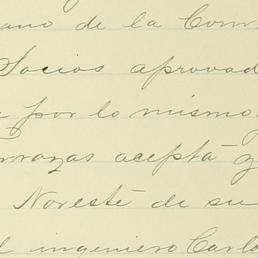 ano de la Com
Socios aprovad
e por lo mismo
rrazas aceptá y
Noreste de su
l ingeniero Carlo